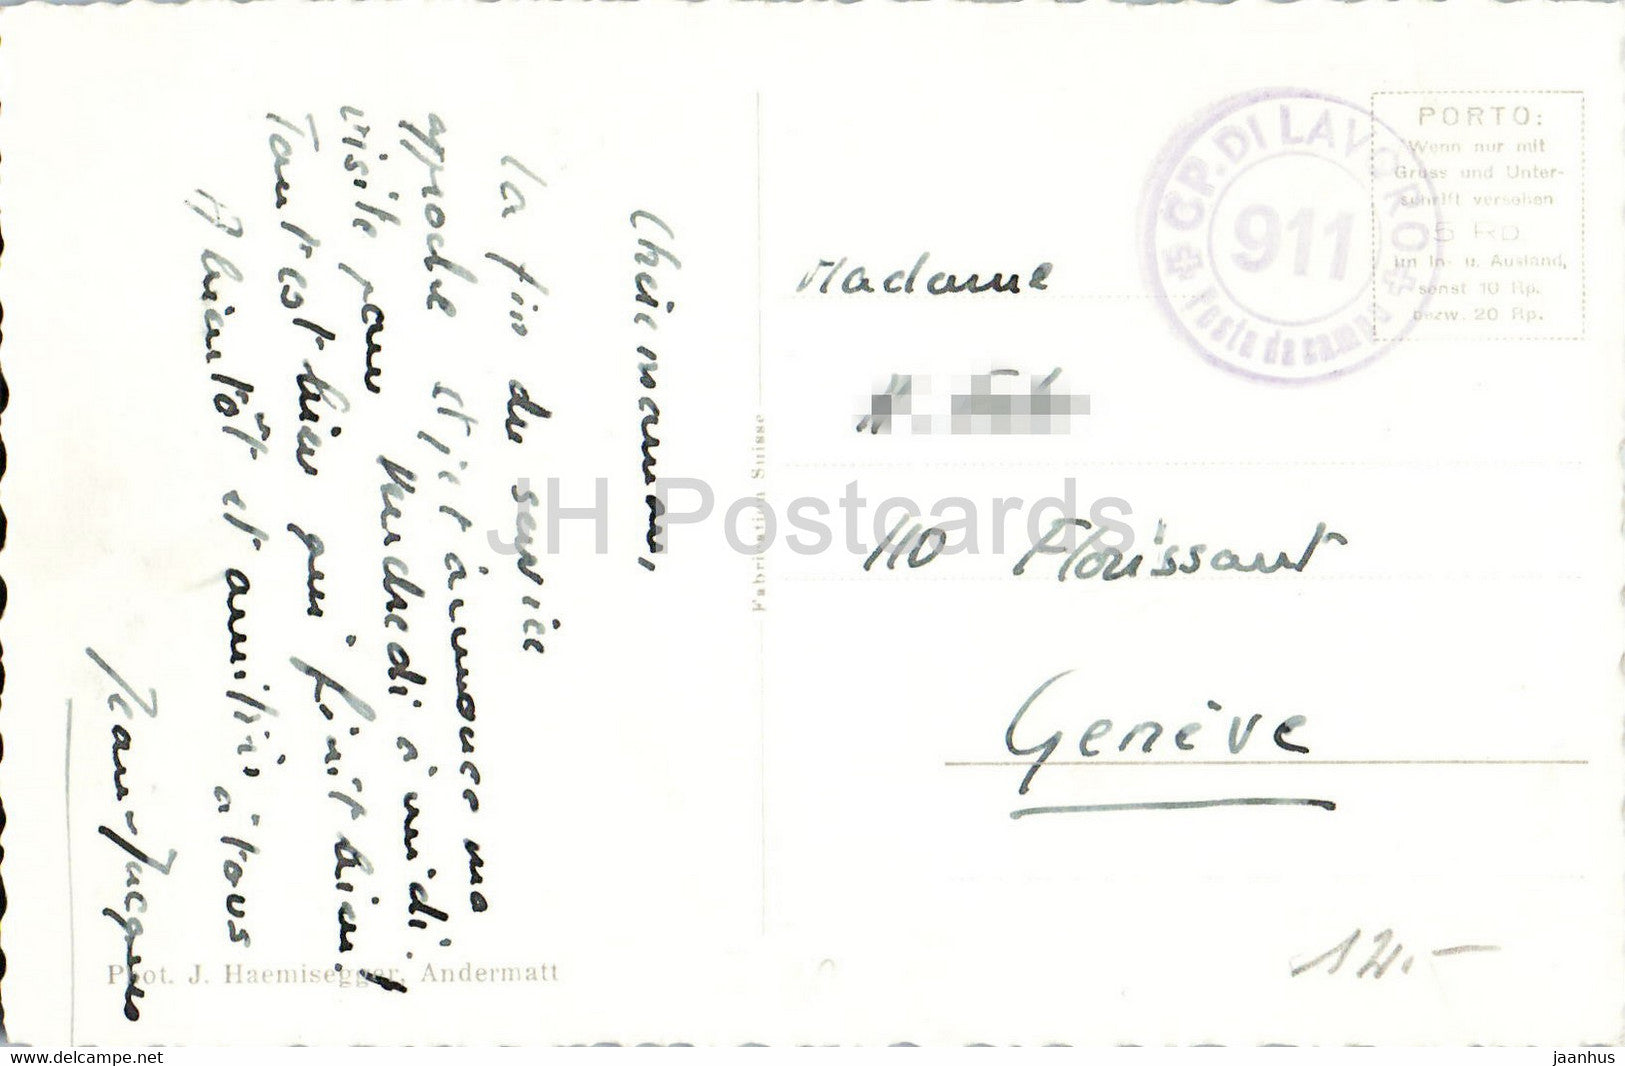 Chère maman,
La fin du service
approche et je t'annonce ma
visite pour Vendredi à midi.
Tout est bien qui finit bien!
A bientôt et amitiés à tous
Jean-Jacques
Phot. J. Haemisegger, Andermatt
Fabrication Suisse
GP. DI LAVORO
911
Posta da campo
PORTO:
Wenn nur mit
Gruss und Unter-
schrift versehen
5 Rp.
im In- u. Ausland,
sonst 10 Rp.
bezw. 20 Rp.
Madame
110 Florissant
Genève
12.-
JH Postcards
www.delcampe.net
jaanhus